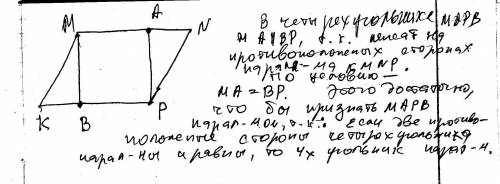 M A N
K B P
В четырехугольнике MAPB
MA || BP, т.к. лежат на
противоположных сторонах
парал-ма KMNP.
По условию —
MA = BP. Этого достаточно,
что бы признать MAPB
парал-мом, т.к. если две противо-
положные стороны четырехугольника
парал-ны и равны, то 4х угольник парал-м.